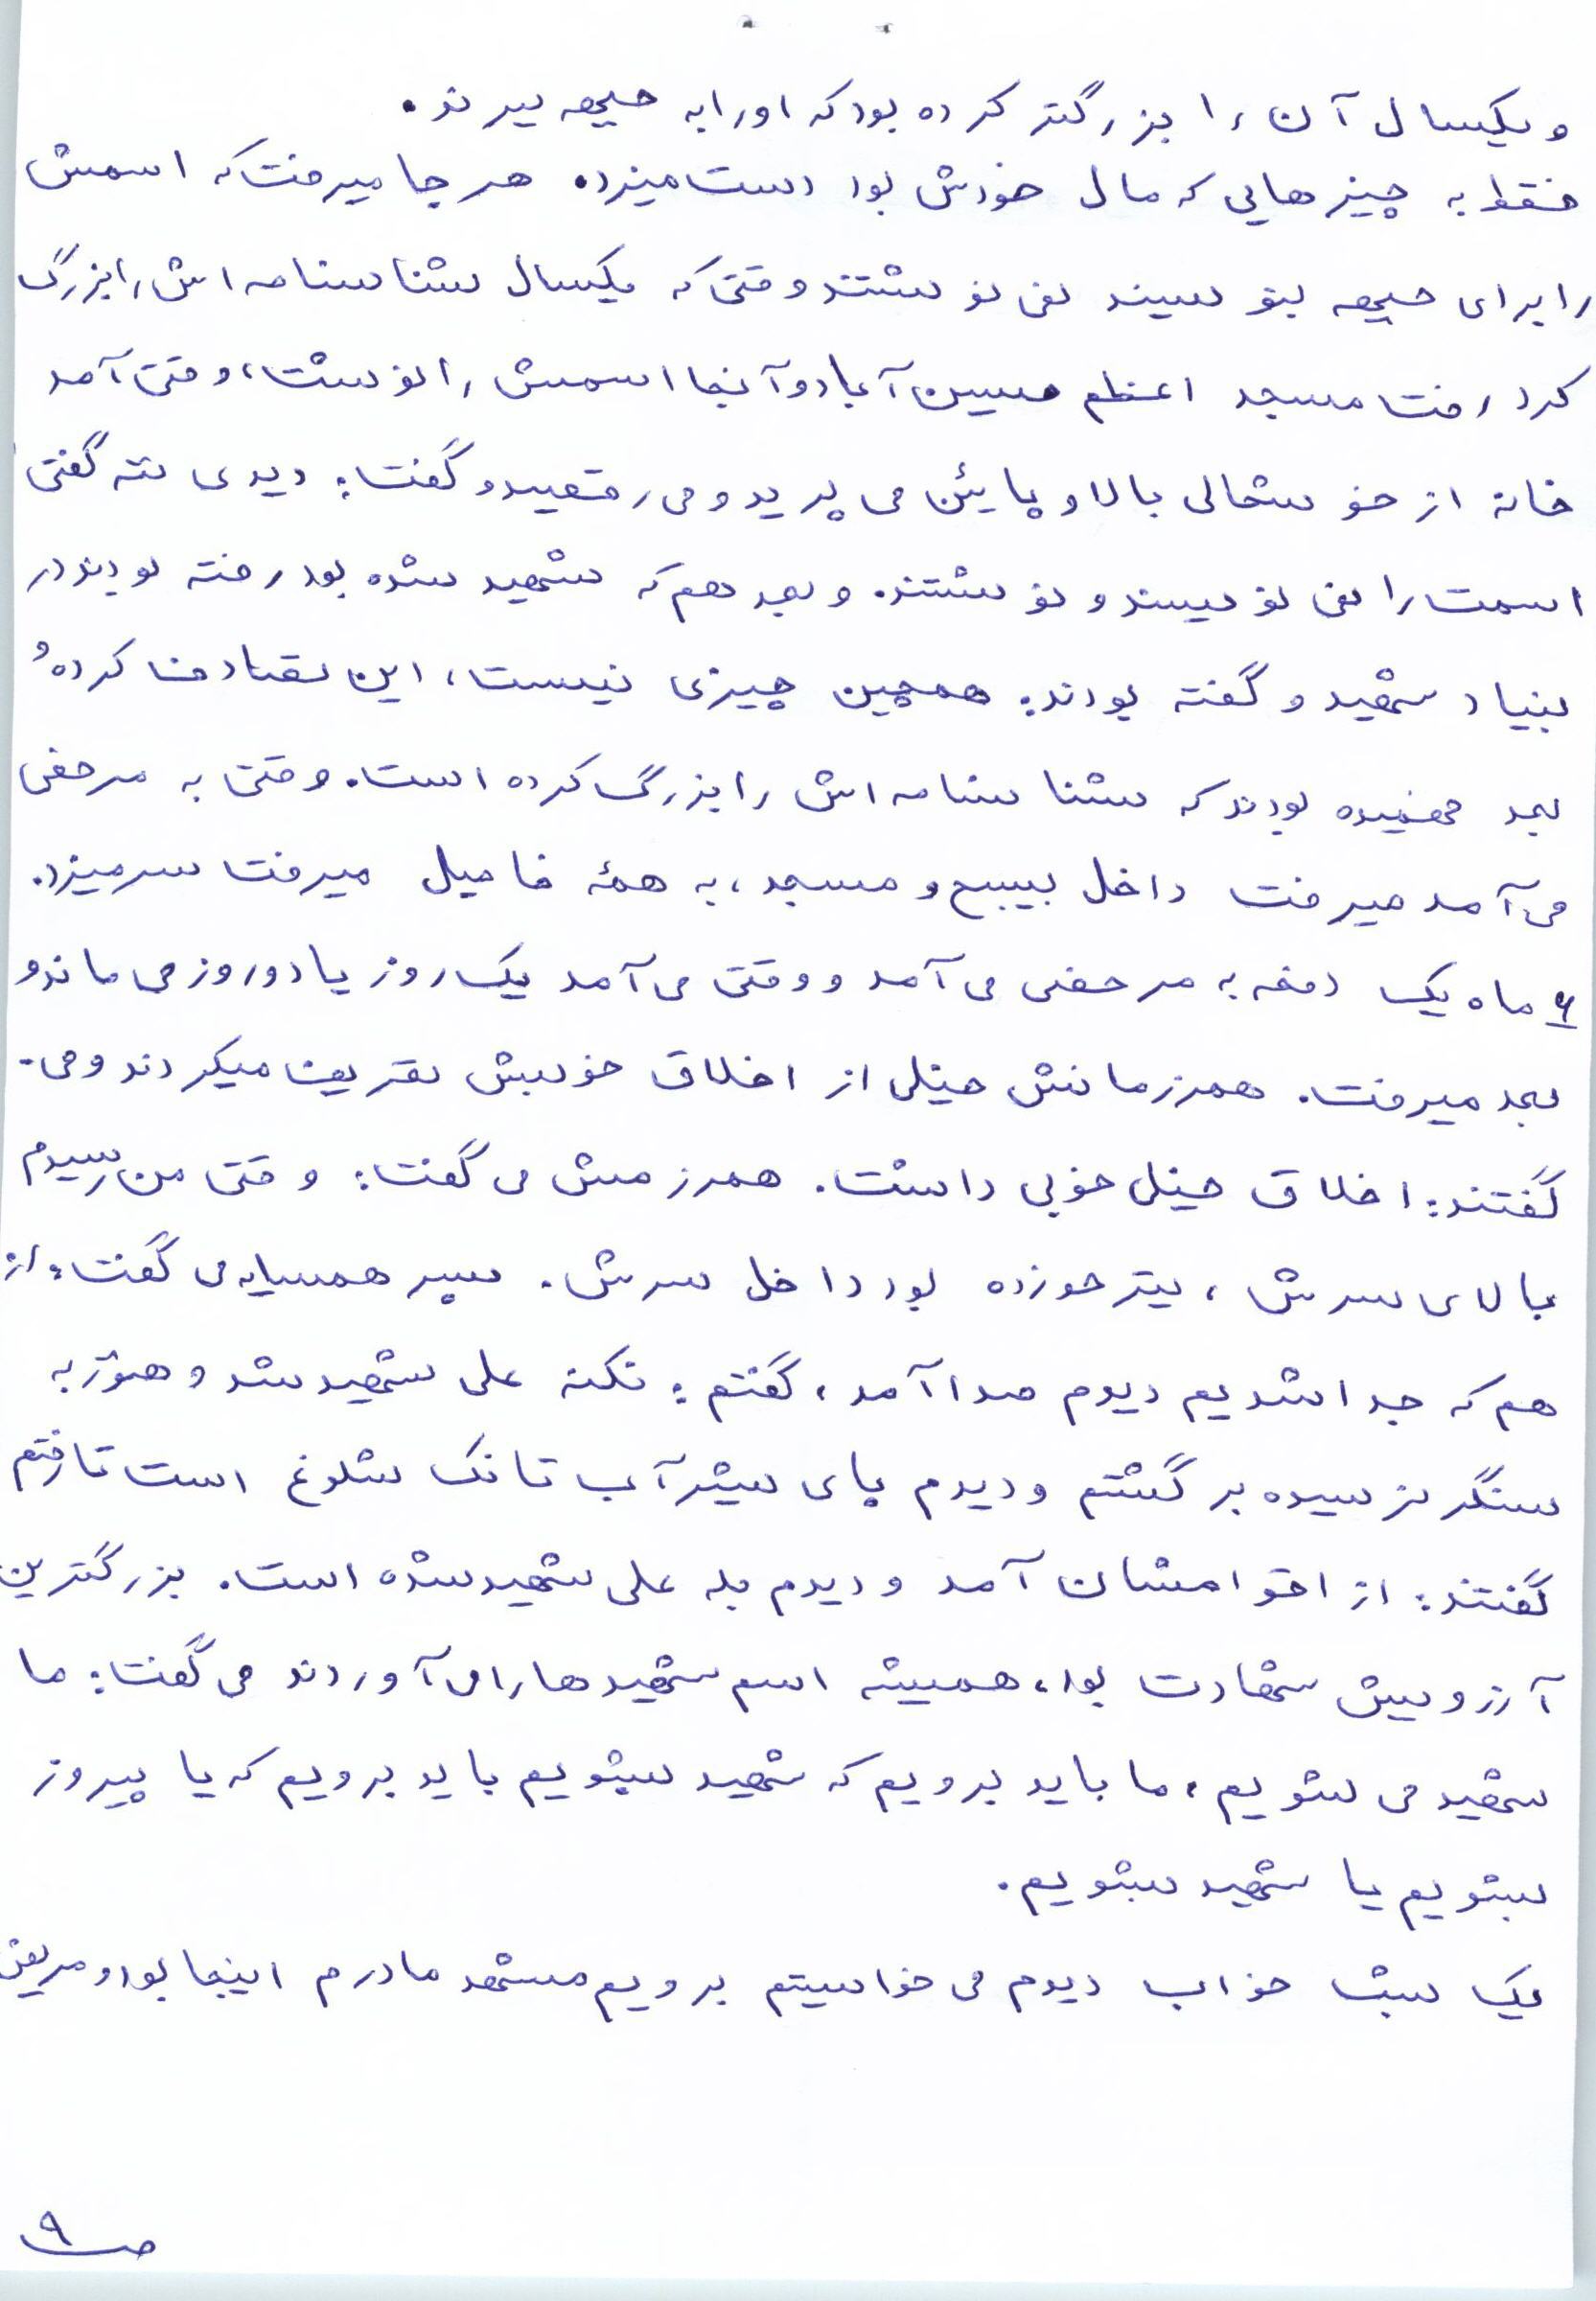 و یکسال آن را بزرگتر کرده بود که او را به جبهه ببرند.
فقط به چیزهایی که مال خودش بود دست میزد. هر جا میرفت که اسمش
را برای جبهه بنویسند نمی نوشتند وقتی که یکسال شناسنامه اش را بزرگ
کرد رفت مسجد اعظم حسین آباد و آنجا اسمش را نوشت، وقتی آمد
خانه از خوشحالی بالا و پایئن می پرید و می رقصید و گفت: دیدی ننه گفتی
اسمت را نمی نویسند و نوشتند. و بعد هم که شهید شده بود رفته بودند در
بنیاد شهید و گفته بودند: همچین چیزی نیست، این تصادف کرده و
بعد فهمیده بودند که شناسنامه اش را بزرگ کرده است. وقتی به مرخصی
می آمد میرفت داخل بسیج و مسجد، به همۀ فامیل میرفت سر میزد.
۶ ماه یک دفعه به مرخصی می آمد و وقتی می آمد یک روز یا دو روز می ماند و
بعد میرفت. همرزمانش خیلی از اخلاق خوبش تعریف میکردند و می-
گفتند: اخلاق خیلی خوبی داشت. همرزمش می گفت: وقتی من رسیدم
بالای سرش، تیر خورده بود داخل سرش. پسر همسایه می گفت: از
هم که جدا شدیم دیدم صدا آمد، گفتم: نکنه علی شهید شد و هنوز به
سنگر نرسیده برگشتم و دیدم پای شیر آب تانک شلوغ است تا رفتم
گفتند: از اقوامشان آمد و دیدم بله علی شهید شده است. بزرگترین
آرزویش شهادت بود، همیشه اسم شهیدها را می آوردند می گفت: ما
شهید می شویم، ما باید برویم که شهید بشویم باید برویم که یا پیروز
بشویم یا شهید بشویم.
یک شب خواب دیدم می خواستیم برویم مشهد مادرم اینجا بود و مریض
ص ۹